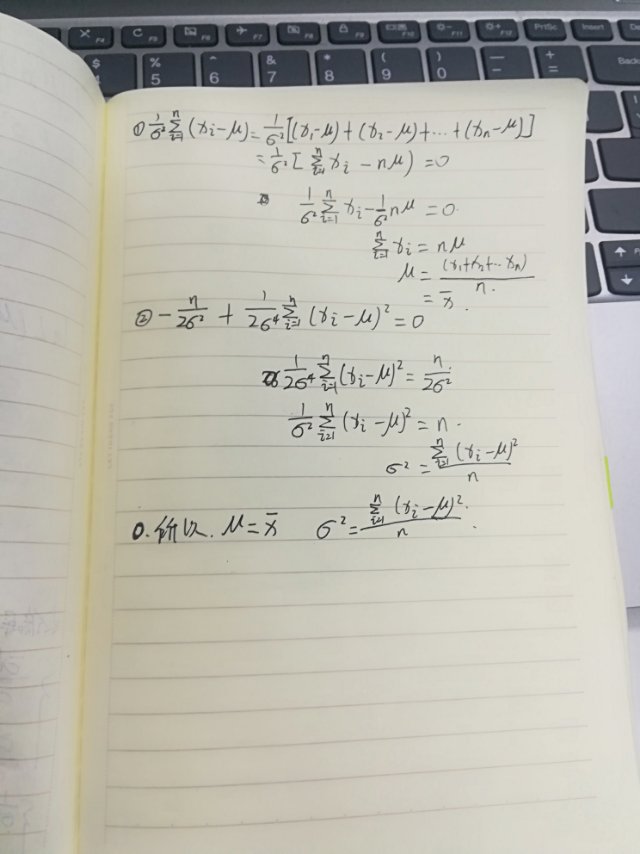 F4 F5 F6 F7 F8 F9 F10 F11 F12 PrtSc Insert
$ 4 % 5 ^ 6 & 7 * 8 ( 9 ) 0 — - + = Backs
① 1/σ² Σ_{i=1}^{n} (x_i-μ) = 1/σ² [(x₁-μ) + (x₂-μ) + … + (x_n-μ)]
= 1/σ² [ Σ_{i=1}^{n} x_i - nμ ) = 0
1/σ² Σ_{i=1}^{n} x_i - 1/σ² nμ = 0.
Σ_{i=1}^{n} x_i = nμ
μ = (x₁+x₂+…x_n) / n.
= x̄.
② - n/2σ² + 1/2σ⁴ Σ_{i=1}^{n} (x_i-μ)² = 0
1/2σ⁴ Σ_{i=1}^{n} (x_i-μ)² = n/2σ².
1/σ² Σ_{i=1}^{n} (x_i-μ)² = n.
σ² = Σ_{i=1}^{n} (x_i-μ)² / n
所以. μ = x̄ σ² = Σ_{i=1}^{n} (x_i-μ)² / n.